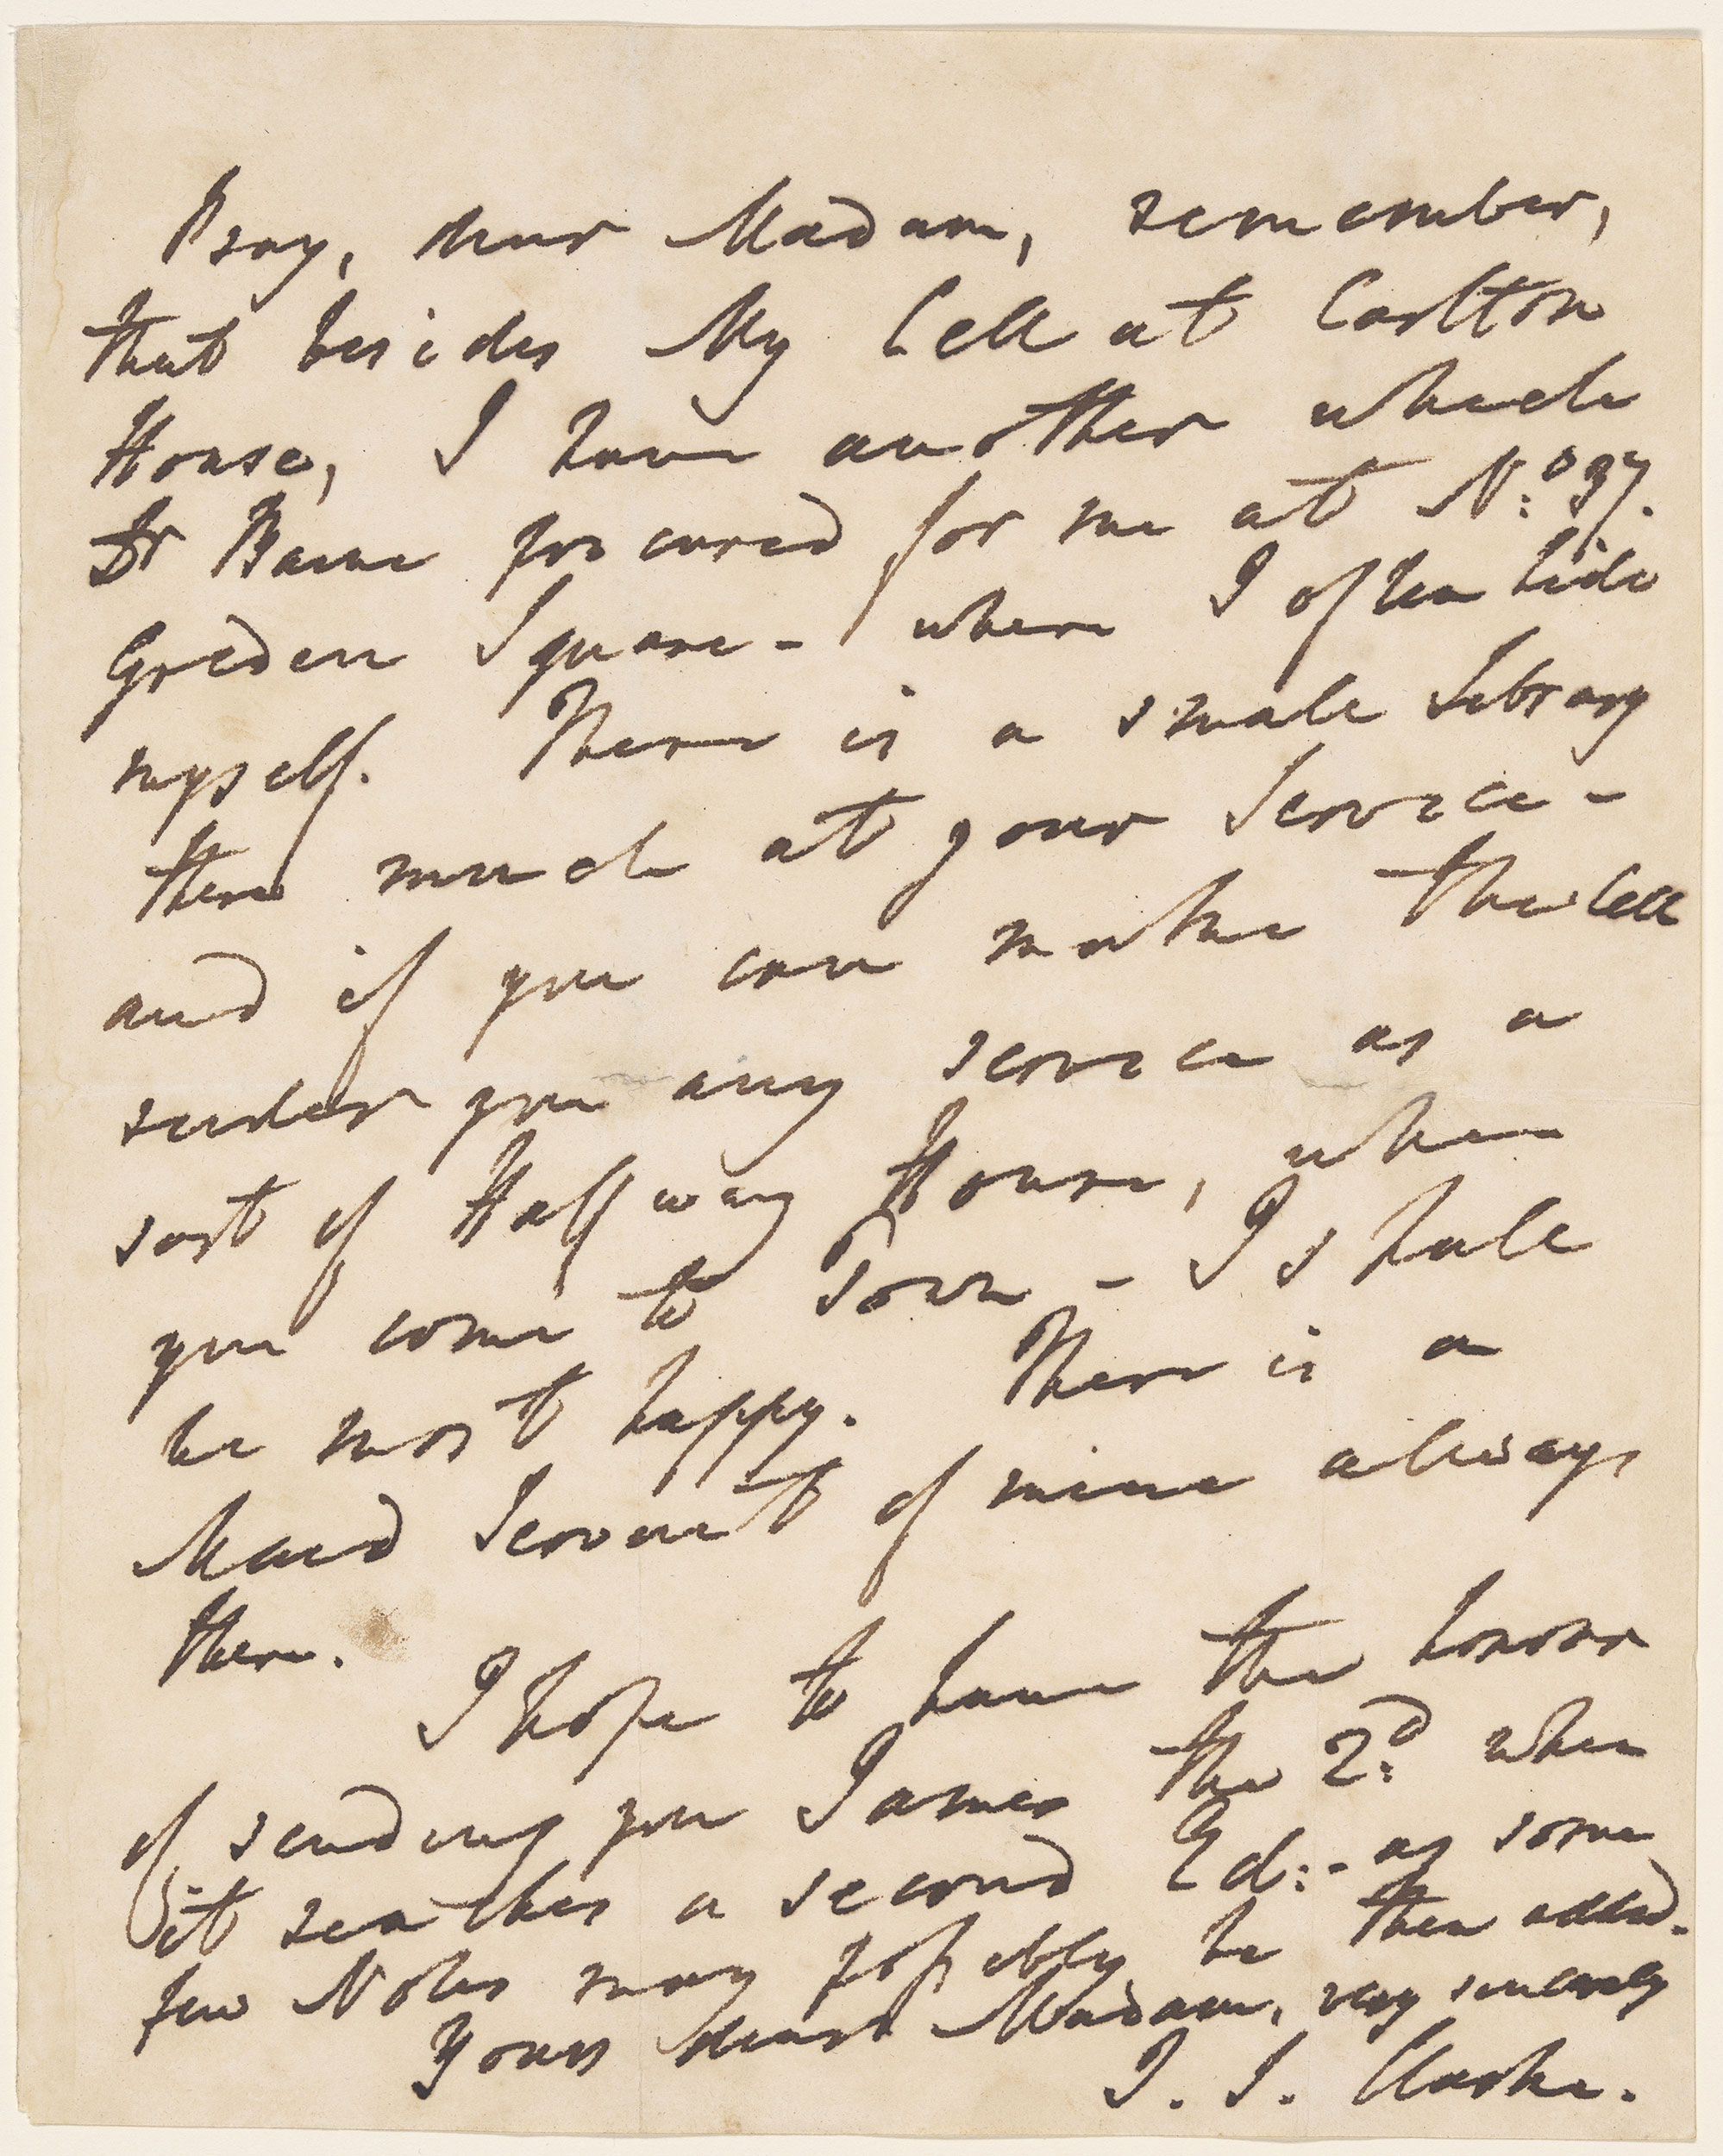 Pray, dear Madam, remember,
that besides My Cell at Carlton
House, I have another which
Dr Barne procured for me at N:o 37.
Golden Square - where I often hide
myself. There is a small Library
there much at your Service -
and if you can make the Cell
render you any service as a
sort of Halfway House, when
you come to Town - I shall
be most happy. There is a
Maid Servant of mine always
there.
I hope to have the honour
of sending you James the 2:d when
it reaches a second Ed:- as some
few Notes may possibly be then added.
Yours dear Madam, very sincerely
J. S. Clarke.